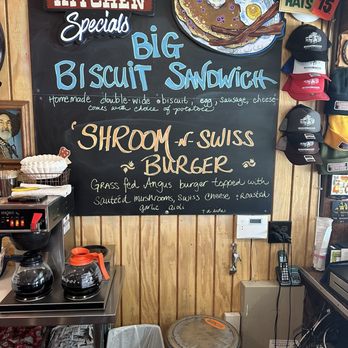 KITCHEN
Specials
BiG
BiscuiT SANDWiCH
Homemade double-wide biscuit, egg, sausage, cheese
comes with choice of potatoes
SHROOM -N- SWISS
BURGER
GRASS fed Angus burger topped with
sautéd mushrooms, swiss cheese + roasted
garlic aioli
HATS
15